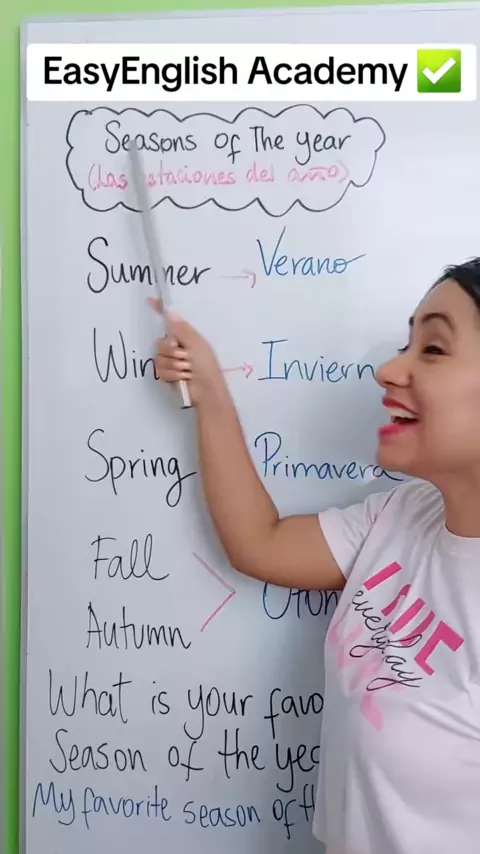 EasyEnglish Academy ✅
Seasons of The year
(Las estaciones del año)
Summer → Verano
→
Spring Primavera
Fall
Autumn
What is your
Season of the
My favorite season of
love
everyday